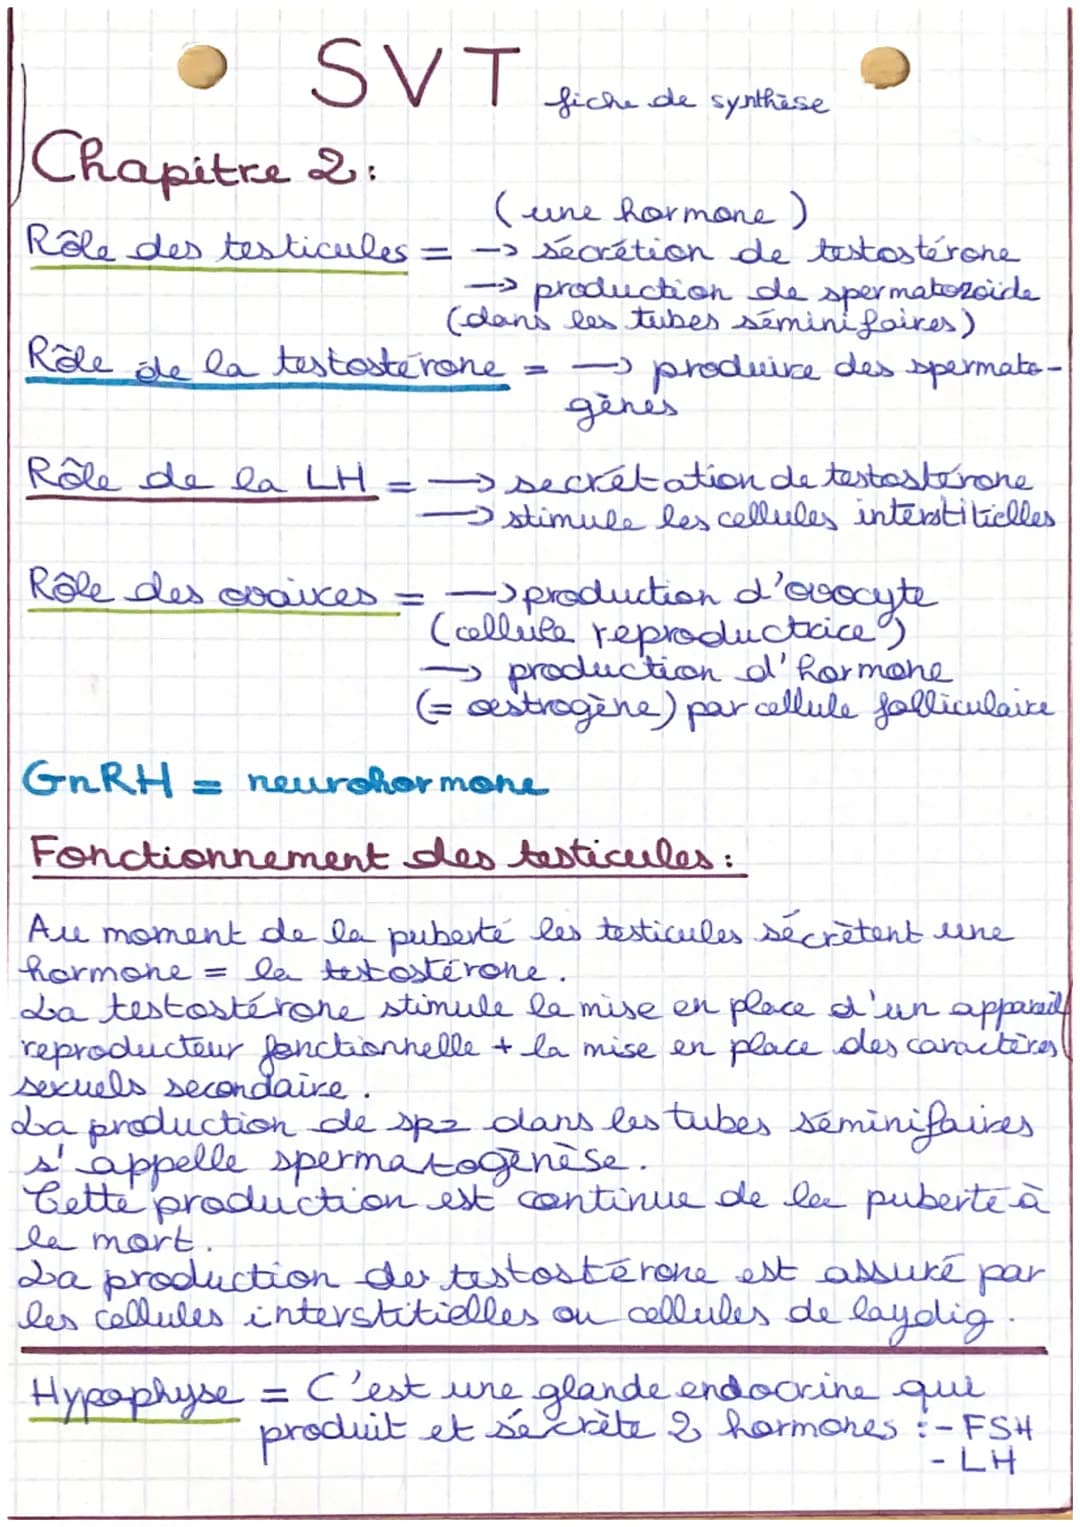 SVT fiche de synthèse
Chapitre 2 :
(une hormone)
Rôle des testicules = -> sécrétion de testostérone
-> production de spermatozoïde
(dans les tubes séminifaires)
Rôle de la testostérone = -> produire des spermato-
gènes
Rôle de la LH = -> secrétation de testostérone
-> stimule les cellules interstitielles
Rôle des ovaires = -> production d'ovocyte
(cellule reproductrice)
-> production d'hormone
(= œstrogène) par cellule folliculaire
GnRH = neurohormone
Fonctionnement des testicules :
Au moment de la puberté les testicules sécrètent une
hormone = la testostérone.
La testostérone stimule la mise en place d'un appareil
reproducteur fonctionnelle + la mise en place des caractères
sexuels secondaire.
La production de spz dans les tubes séminifaires
s'appelle spermatogenèse.
Cette production est continue de la puberté à
la mort.
La production de testostérone est assuré par
les cellules interstitielles ou cellules de laydig.
Hypophyse = C'est une glande endocrine qui
produit et sécrète 2 hormones : - FSH
- LH